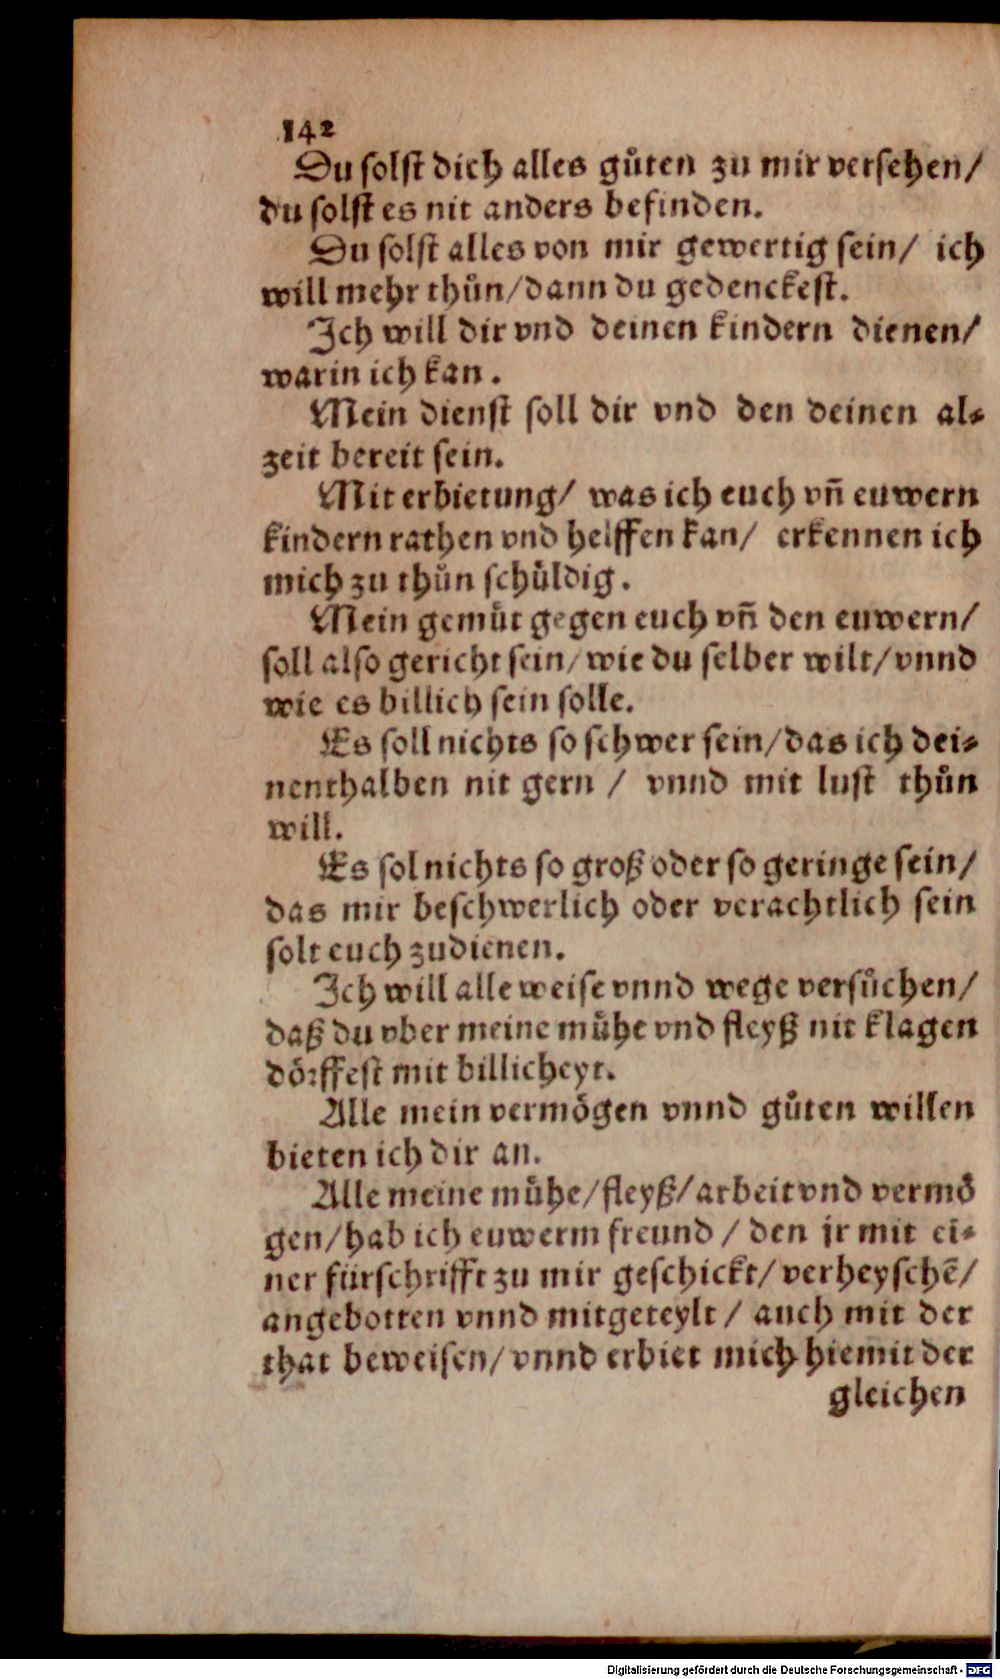 142
Du solst dich alles gůten zu mir versehen/
du solst es nit anders befinden.
Du solst alles von mir gewertig sein/ ich
will mehr thůn/dann du gedenckest.
Ich will dir vnd deinen kindern dienen/
warin ich kan.
Mein dienst soll dir vnd den deinen al⸗
zeit bereit sein.
Mit erbietung/ was ich euch vñ euwern
kindern rathen vnd helffen kan/ erkennen ich
mich zu thůn schůldig.
Mein gemůt gegen euch vñ den euwern/
soll also gericht sein/wie du selber wilt/vnnd
wie es billich sein solle.
Es soll nichts so schwer sein/das ich dei⸗
nenthalben nit gern / vnnd mit lust thůn
will.
Es sol nichts so groß oder so geringe sein/
das mir beschwerlich oder verachtlich sein
solt euch zudienen.
Ich will alle weise vnnd wege versůchen/
daß du vber meine můhe vnd fleyß nit klagen
dôrffest mit billicheyt.
Alle mein vermôgen vnnd gůten willen
bieten ich dir an.
Alle meine můhe/fleyß/arbeit vnd vermô
gen/hab ich euwerm freund / den jr mit ei⸗
ner fürschrifft zu mir geschickt/verheyschẽ/
angebotten vnnd mitgeteylt / auch mit der
that beweisen/vnnd erbiet mich hiemit der
gleichen
Digitalisierung gefördert durch die Deutsche Forschungsgemeinschaft - DFG